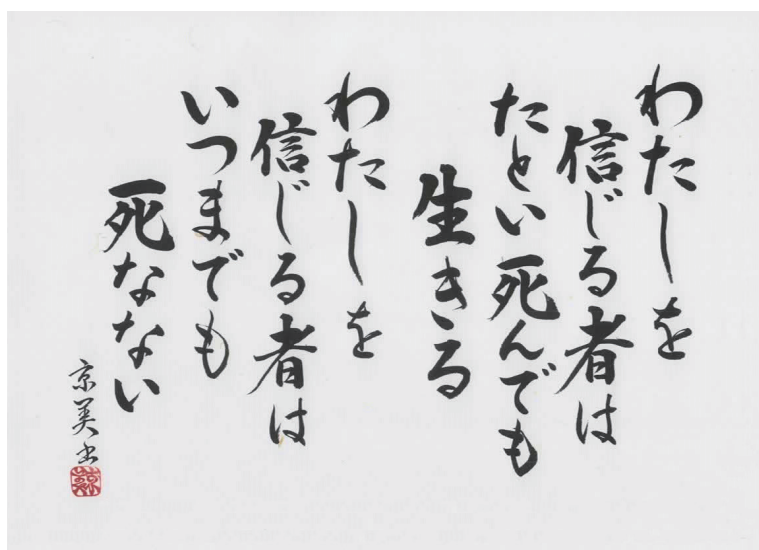 わたしを
信じる者は
たとい死んでも
生きる
わたしを
信じる者は
いつまでも
死なない
京美書